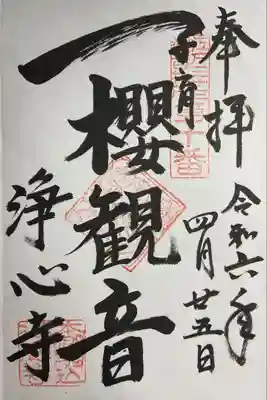 奉拝
令和六年
四月廿五日
子育
一櫻観音
浄心寺